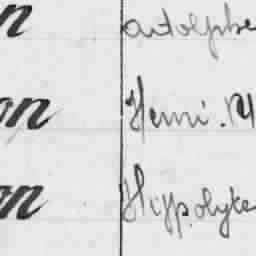 n adolphe
on Henri. M
on Hyppolyte